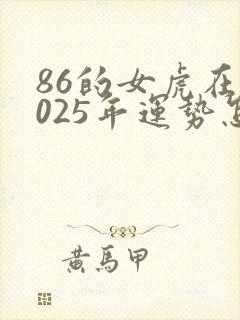 86的女虎在
025年運勢怎
黄馬甲